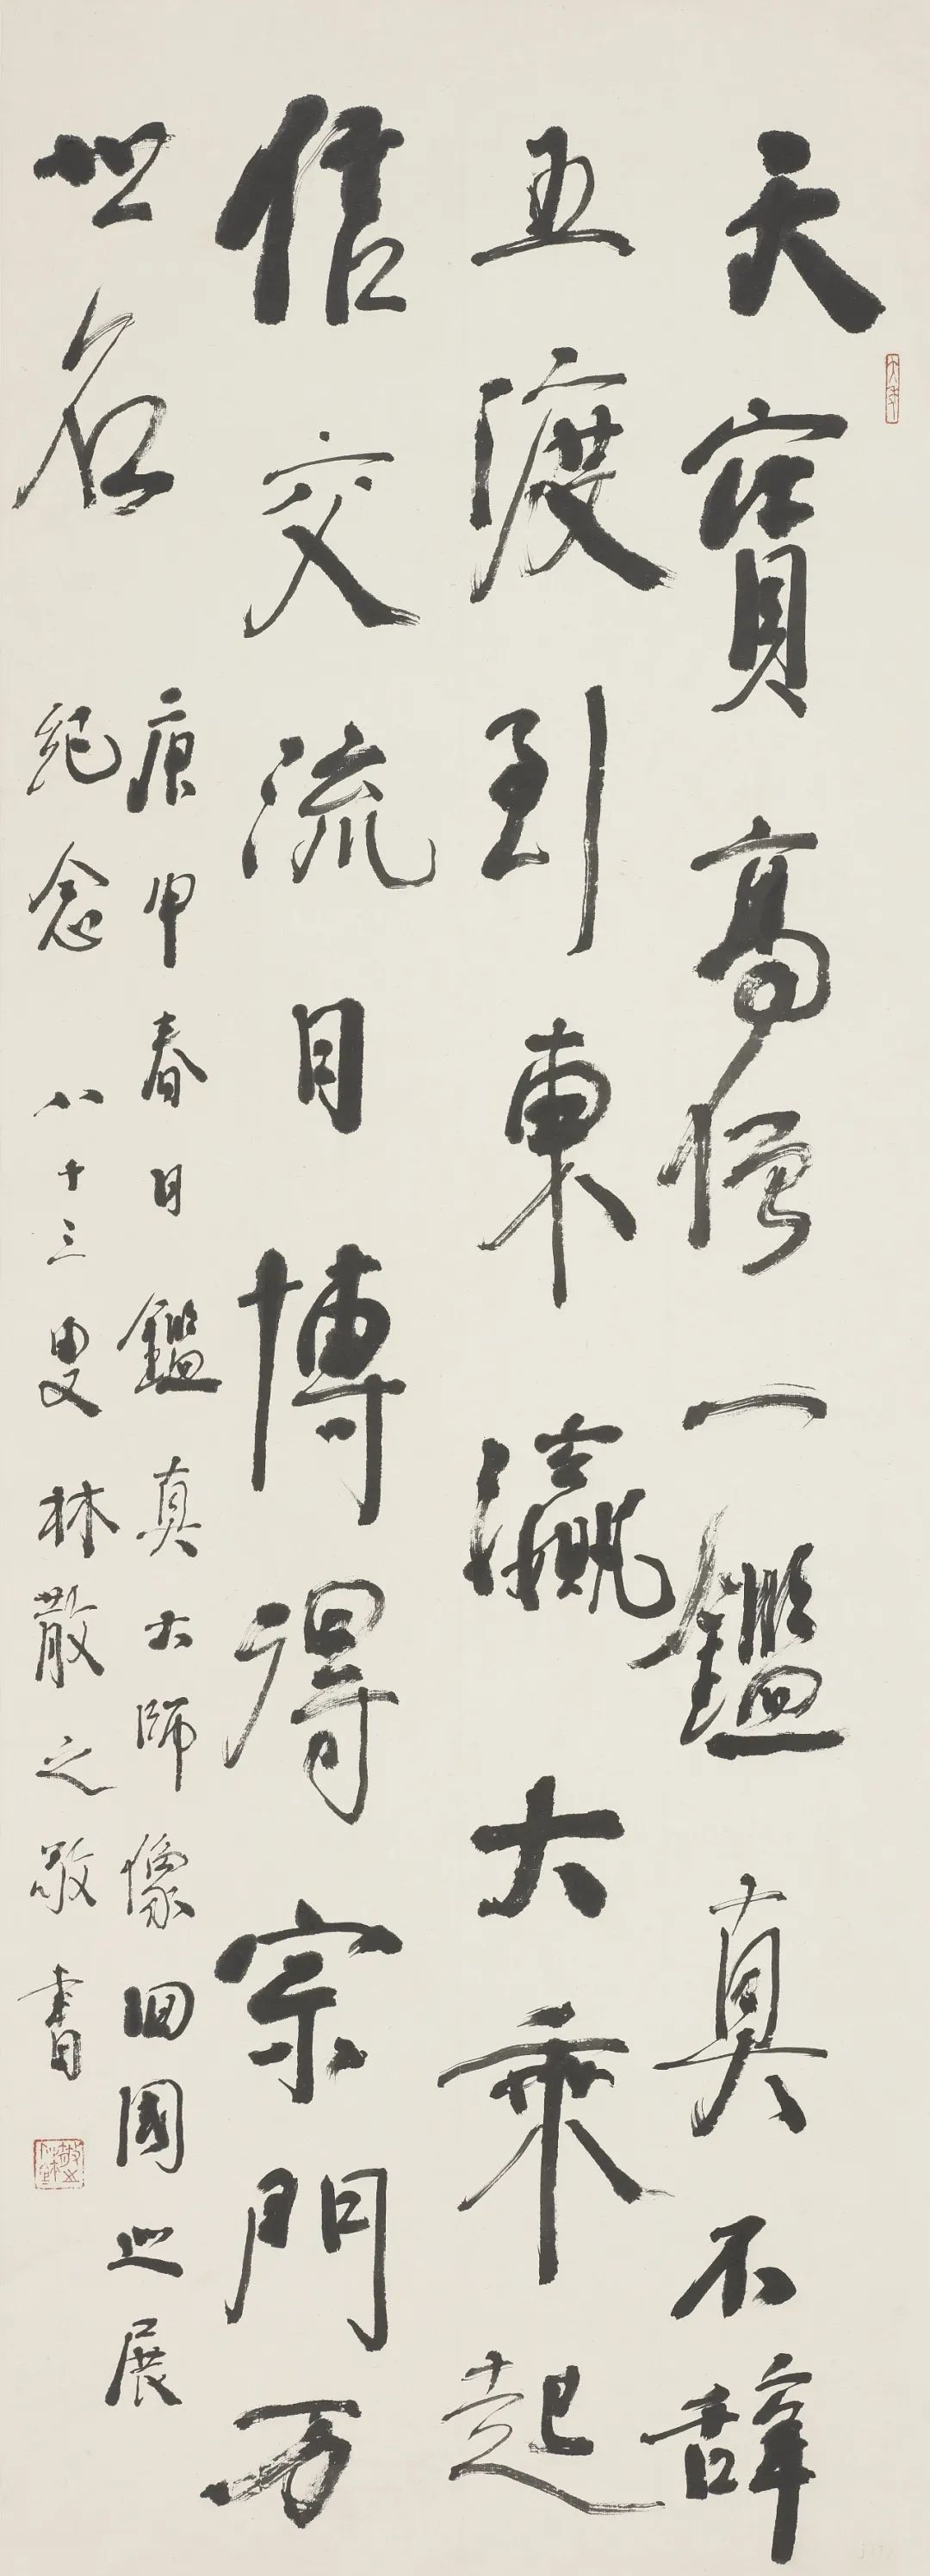 天寶高僧一鑑真不辭
五渡到東瀛大乘起
信交流日博得宗門万
世名
庚申春日鑑真大師像回國巡展
紀念八十三叟林散之敬書